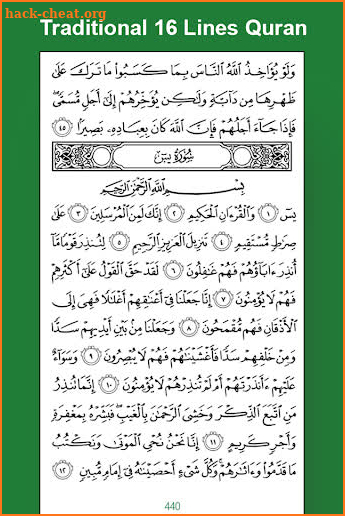 hack-cheat.org
Traditional 16 Lines Quran
وَلَوۡ يُؤَاخِذُ ٱللَّهُ ٱلنَّاسَ بِمَا كَسَبُواْ مَا تَرَكَ عَلَىٰ
ظَهۡرِهَا مِن دَآبَّةٖ وَلَٰكِن يُؤَخِّرُهُمۡ إِلَىٰٓ أَجَلٖ مُّسَمّٗىۖ
فَإِذَا جَآءَ أَجَلُهُمۡ فَإِنَّ ٱللَّهَ كَانَ بِعِبَادِهِۦ بَصِيرَۢا ٤٥
سُورَةُ يسٓ
بِسۡمِ ٱللَّهِ ٱلرَّحۡمَٰنِ ٱلرَّحِيمِ
يسٓ ١ وَٱلۡقُرۡءَانِ ٱلۡحَكِيمِ ٢ إِنَّكَ لَمِنَ ٱلۡمُرۡسَلِينَ ٣ عَلَىٰ
صِرَٰطٖ مُّسۡتَقِيمٖ ٤ تَنزِيلَ ٱلۡعَزِيزِ ٱلرَّحِيمِ ٥ لِتُنذِرَ قَوۡمٗا مَّآ
أُنذِرَ ءَابَآؤُهُمۡ فَهُمۡ غَٰفِلُونَ ٦ لَقَدۡ حَقَّ ٱلۡقَوۡلُ عَلَىٰٓ أَكۡثَرِهِمۡ
فَهُمۡ لَا يُؤۡمِنُونَ ٧ إِنَّا جَعَلۡنَا فِيٓ أَعۡنَٰقِهِمۡ أَغۡلَٰلٗا فَهِيَ إِلَى
ٱلۡأَذۡقَانِ فَهُم مُّقۡمَحُونَ ٨ وَجَعَلۡنَا مِنۢ بَيۡنِ أَيۡدِيهِمۡ سَدّٗا
وَمِنۡ خَلۡفِهِمۡ سَدّٗا فَأَغۡشَيۡنَٰهُمۡ فَهُمۡ لَا يُبۡصِرُونَ ٩ وَسَوَآءٌ
عَلَيۡهِمۡ ءَأَنذَرۡتَهُمۡ أَمۡ لَمۡ تُنذِرۡهُمۡ لَا يُؤۡمِنُونَ ١٠ إِنَّمَا تُنذِرُ
مَنِ ٱتَّبَعَ ٱلذِّكۡرَ وَخَشِيَ ٱلرَّحۡمَٰنَ بِٱلۡغَيۡبِۖ فَبَشِّرۡهُ بِمَغۡفِرَةٖ
وَأَجۡرٖ كَرِيمٍ ١١ إِنَّا نَحۡنُ نُحۡيِ ٱلۡمَوۡتَىٰ وَنَكۡتُبُ
مَا قَدَّمُواْ وَءَاثَٰرَهُمۡۚ وَكُلَّ شَيۡءٍ أَحۡصَيۡنَٰهُ فِيٓ إِمَامٖ مُّبِينٖ ١٢
440
hack-cheat.org